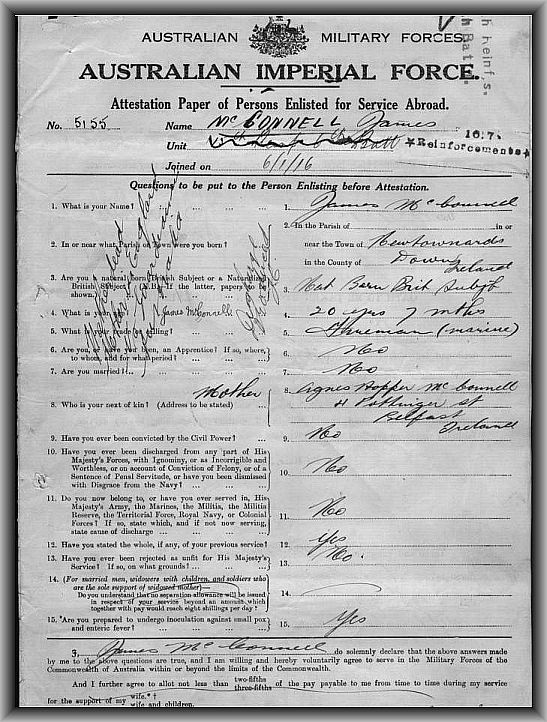 AUSTRALIAN MILITARY FORCES.
AUSTRALIAN IMPERIAL FORCE.
Attestation Paper of Persons Enlisted for Service Abroad.
No. 5155 Name McCONNELL James
Unit Batt
16.7.
*Reinforcements*
Joined on 6/1/16
Questions to be put to the Person Enlisting before Attestation.
1. What is your Name? ... 1. James McConnell
2. In or near what Parish or Town were you born? 2. In the Parish of in or
near the Town of Newtownards
in the County of Down
Ireland
3. Are you a natural born British Subject or a Naturalized
British Subject? (N.B.—If the latter, papers to be
shown.) 3. Nat Born Brit Subjt
4. What is your age? James McConnell 4. 20 yrs 7 mths
5. What is your trade or calling? 5. Fireman (marine)
6. Are you, or have you been, an Apprentice? If so, where,
to whom, and for what period? 6. No
7. Are you married? 7. No
Mother
8. Who is your next of kin? (Address to be stated) 8. Agnes Hopper McConnell
4 Pottinger st
Belfast
Ireland
9. Have you ever been convicted by the Civil Power? 9. No
10. Have you ever been discharged from any part of His
Majesty's Forces, with Ignominy, or as Incorrigible and
Worthless, or on account of Conviction of Felony, or of a
Sentence of Penal Servitude, or have you been dismissed
with Disgrace from the Navy? 10. No
11. Do you now belong to, or have you ever served in, His
Majesty's Army, the Marines, the Militia, the Militia
Reserve, the Territorial Force, Royal Navy, or Colonial
Forces? If so, state which, and if not now serving,
state cause of discharge 11. No
12. Have you stated the whole, if any, of your previous service? 12. Yes
13. Have you ever been rejected as unfit for His Majesty's
Service? If so, on what grounds? 13. No.
14. (For married men, widowers with children, and soldiers who
are the sole support of widowed mother)—
Do you understand that no separation allowance will be issued
in respect of your service beyond an amount which
together with pay would reach eight shillings per day? 14.
15. Are you prepared to undergo inoculation against small pox
and enteric fever? 15. Yes
I, James McConnell do solemnly declare that the above answers made
by me to the above questions are true, and I am willing and hereby voluntarily agree to serve in the Military Forces of the
Commonwealth of Australia within or beyond the limits of the Commonwealth.
And I further agree to allot not less than two-fifths
three-fifths of the pay payable to me from time to time during my service
for the support of my wife.*†
wife and children.